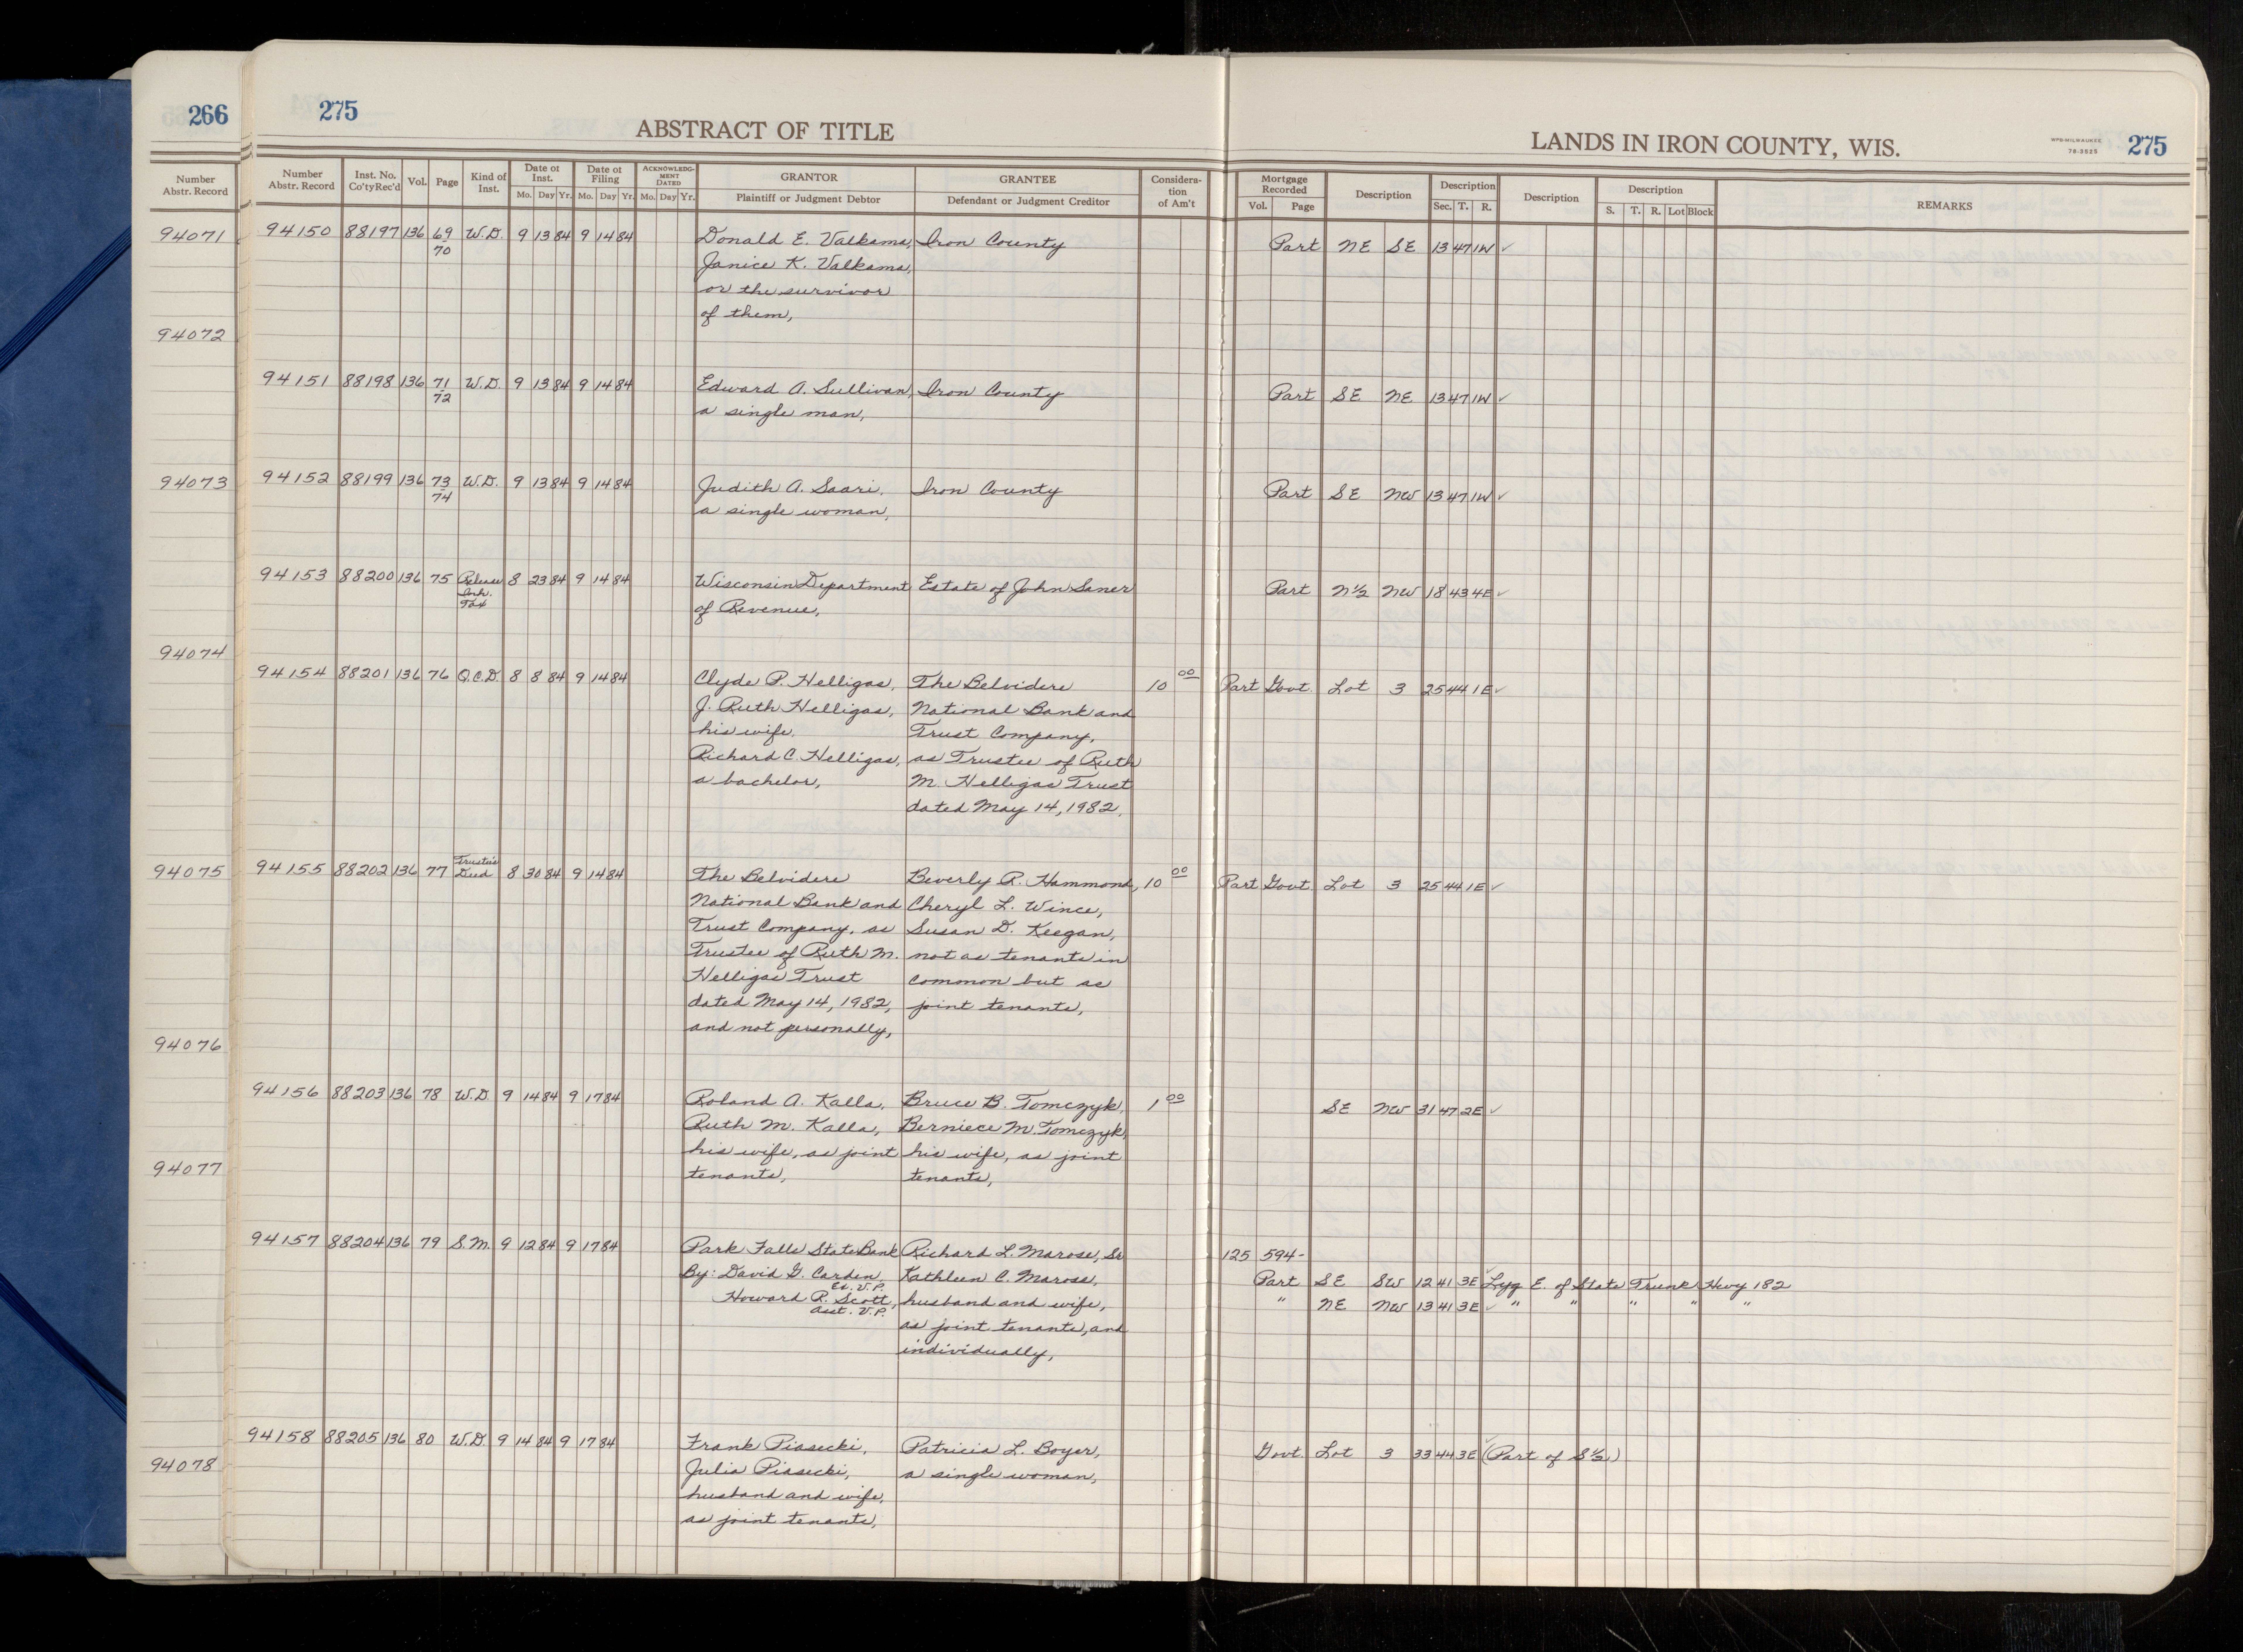 266
275
ABSTRACT OF TITLE
LANDS IN IRON COUNTY, WIS.
WPB-MILWAUKEE
78-3525
275
Number Abstr. Record
Number Abstr. Record
Inst. No. Co'ty Rec'd
Vol.
Page
Kind of Inst.
Date of Inst.
Mo. Day Yr.
Date of Filing
Mo. Day Yr.
ACKNOWLEDGMENT DATED
Mo. Day Yr.
GRANTOR
Plaintiff or Judgment Debtor
GRANTEE
Defendant or Judgment Creditor
Consideration of Am't
Mortgage Recorded
Vol. Page
Description
Description
Sec. T. R.
Description
Description
S. T. R. Lot Block
REMARKS
94071
94072
94073
94074
94075
94076
94077
94078
94150 88197 136 69 W.D. 9 13 84 9 14 84 Donald E. Valkama, Iron County Part NE SE 13 47 1W ✓
70
Janice K. Valkama,
or the survivor
of them,
94151 88198 136 71 W.D. 9 13 84 9 14 84 Edward A. Sullivan, Iron County Part SE NE 13 47 1W ✓
72 a single man,
94152 88199 136 73 W.D. 9 13 84 9 14 84 Judith A. Saari, Iron County Part SE NW 13 47 1W ✓
74 a single woman,
94153 88200 136 75 Release 8 23 84 9 14 84 Wisconsin Department Estate of John Saner Part N½ NW 18 43 4E ✓
Inh. of Revenue,
Tax
94154 88201 136 76 Q.C.D. 8 8 84 9 14 84 Clyde P. Helligas, The Belvidere 10 00 Part Govt. Lot 3 25 44 1E ✓
J. Ruth Helligas, National Bank and
his wife, Trust Company,
Richard C. Helligas, as Trustee of Ruth
a bachelor, M. Helligas Trust
dated May 14, 1982,
94155 88202 136 77 Trustee's Deed 8 30 84 9 14 84 The Belvidere Beverly R. Hammond, 10 00 Part Govt Lot 3 25 44 1E ✓
National Bank and Cheryl L. Wince,
Trust Company, as Susan D. Keegan,
Trustee of Ruth M. not as tenants in
Helligas Trust common but as
dated May 14, 1982, joint tenants,
and not personally,
94156 88203 136 78 W.D. 9 14 84 9 17 84 Roland A. Kalla, Bruce B. Tomczyk, 1 00 SE NW 31 47 2E ✓
Ruth M. Kalla, Berniece M. Tomczyk,
his wife, as joint his wife, as joint
tenants, tenants,
94157 88204 136 79 S.M. 9 12 84 9 17 84 Park Falls State Bank Richard L. Marose, Sr 125 594-
By: David G. Carden, Kathleen C. Marose, Part SE SW 12 41 3E ✓ Lyg E. of State Trunk Hwy 182
Ex. V.P.
Howard R. Scott, husband and wife, " NE NW 13 41 3E ✓ " " " " "
Asst. V.P.
as joint tenants, and
individually,
94158 88205 136 80 W.D. 9 14 84 9 17 84 Frank Piasecki, Patricia L. Boyer, Govt. Lot 3 33 44 3E ✓ (Part of S½)
Julia Piasecki, a single woman,
husband and wife,
as joint tenants,